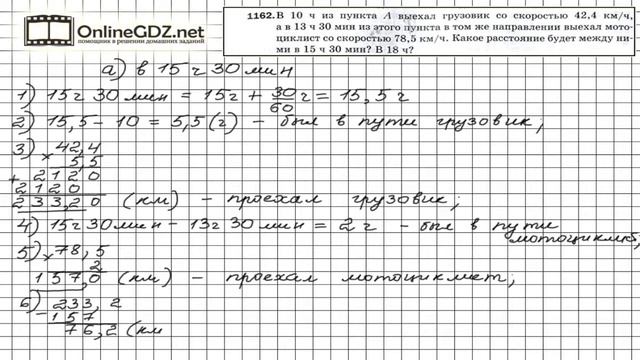 OnlineGDZ.net
ПОМОЩНИК В РЕШЕНИИ ДОМАШНИХ ЗАДАНИЙ
1162. В 10 ч из пункта A выехал грузовик со скоростью 42,4 км/ч,
а в 13 ч 30 мин из этого пункта в том же направлении выехал мото-
циклист со скоростью 78,5 км/ч. Какое расстояние будет между ни-
ми в 15 ч 30 мин? В 18 ч?
а) в 15 ч 30 мин
1) 15 ч 30 мин = 15 ч + 30/60 ч = 15,5 ч
2) 15,5 - 10 = 5,5 (ч) - был в пути грузовик;
3) × 42,4
5,5
+ 2120
2120
233,20 (км) - проехал грузовик;
4) 15 ч 30 мин - 13 ч 30 мин = 2 ч - был в пути
мотоциклист,
5) × 78,5
2
157,0 (км) - проехал мотоциклист;
6) - 233,2
157
76,2 (км